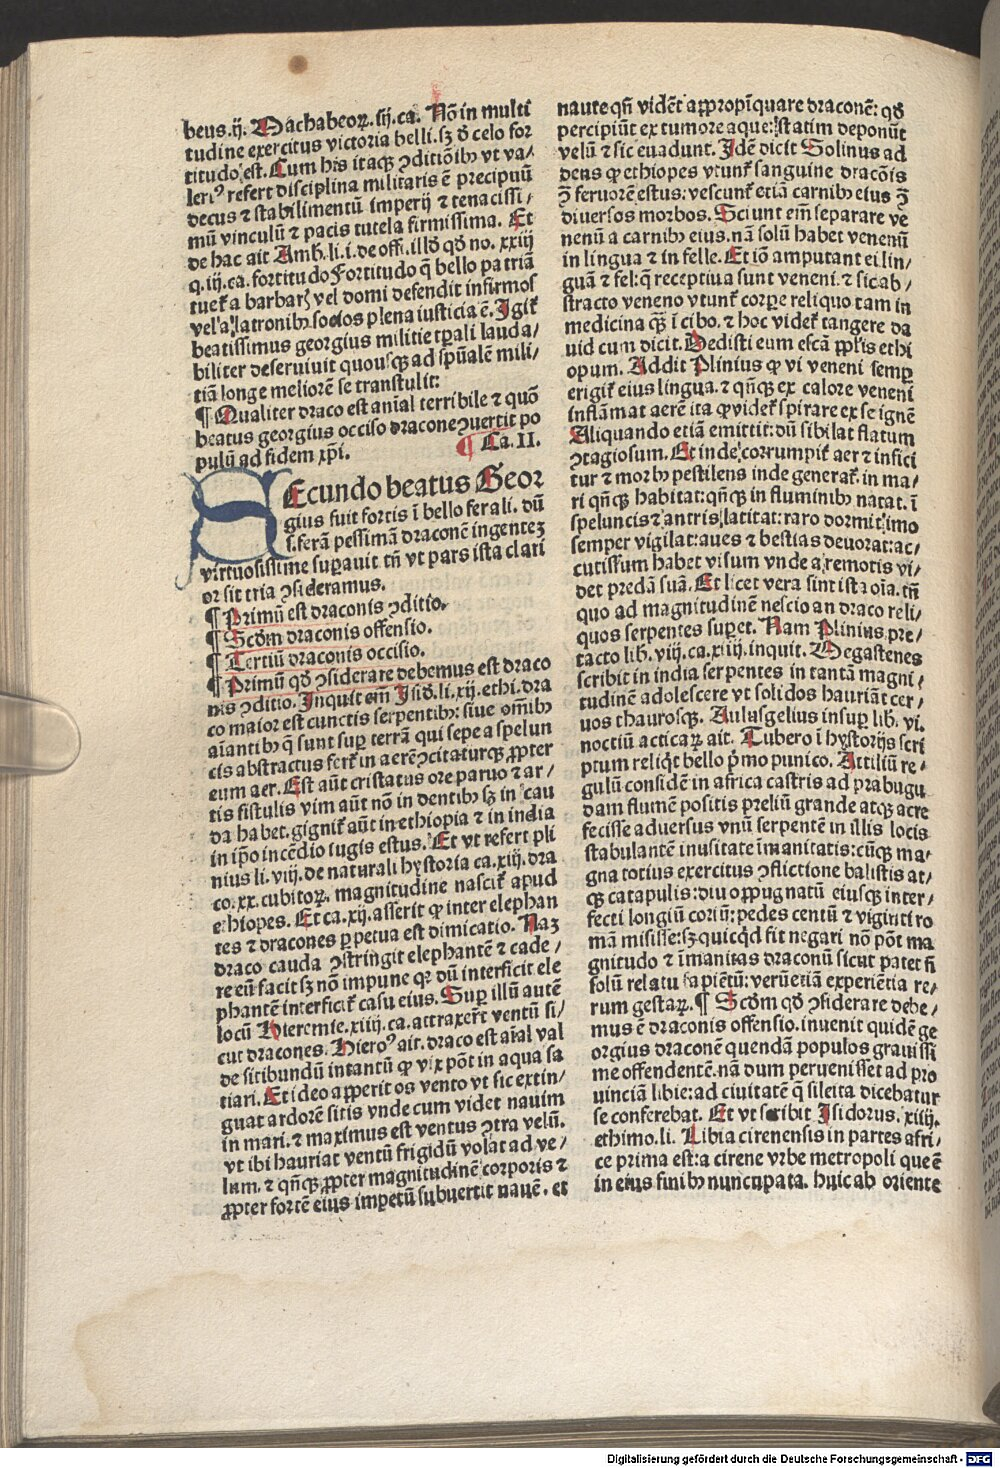 beus.ij. Machabeoꝝ.iij.ca. Nō in multi
tudine exercitus victoria belli.sꝫ ð celo for
titudo est. Cum his itaqꝫ ꝯditiōibꝰ vt va⸗
leriꝰ refert disciplina militaris ē precipuū
decus ⁊ stabilimentū imperij ⁊ tenacissi⸗
mū vinculū ⁊ pacis tutela firmissima. Et
de hac ait Amb.li.i.de offi.illð qð no.xxiij
q.iij.ca.fortitudo Fortitudo q̄ bello patriā
tuet᷑ a barbaris vel domi defendit infirmos
vel a latronibꝰ socios plena iusticia ē. Igit᷑
beatissimus georgius militie tꝑali lauda⸗
biliter deseruiuit quousqꝫ ad spūalē mili⸗
tiā longe meliorē se transtulit:
¶ Qualiter draco est aīal terribile ⁊ quō
beatus georgius occiso dracone ꝯuertit po
pulū ad fidem xp̄i. ¶ Ca.II.
SEcundo beatus Geor
gius fuit fortis ī bello ferali. dū
s.ferā pessimā draconē ingentez
virtuosissime suꝑauit tn̄ vt pars ista clari
or sit tria ꝯsideramus.
¶ Primū est draconis ꝯditio.
¶ Scðm draconis offensio.
¶ Tertiū draconis occisio.
¶ Primū qð ꝯsiderare debemus est draco
nis ꝯditio. Inquit em̄ Isið.li.xij.ethi.dra
co maior est cunctis serpentibꝰ: siue om̄ibꝰ
aīantibꝰ q̄ sunt suꝑ terrā qui sepe a spelun
cis abstractus fert᷑ in aerē ꝯcitaturqꝫ ꝓpter
eum aer. Est aūt cristatus ore paruo ⁊ ar⸗
tis fistulis vim aūt nō in dentibꝰ sꝫ in cau
da habet.gignit᷑ aūt in ethiopia ⁊ in india
in ip̄o incēdio iugis estus. Et vt refert pli
nius li.viij.de naturali hystoria ca.xiij.dra
co.xx.cubitoꝝ. magnitudine nascit᷑ apud
ethiopes. Et ca.xij.asserit ꝙ inter elephan
tes ⁊ dracones ꝑpetua est dimicatio. Naꝫ
draco cauda ꝯstringit elephantē ⁊ cade⸗
re eū facit sꝫ nō impune qꝛ dū interficit ele
phantē interficit᷑ casu eius. Suꝑ illū autē
locū Hieremie.xiiij.ca.attraxer̄t ventū si⸗
cut dracones. Hieroꝰ ait. draco est aīal val
de sitibundū intantū ꝙ vix pōt in aqua sa
tiari. Et ideo aꝑerit os vento vt sic extin⸗
guat ardorē sitis vnde cum videt nauim
in mari. ⁊ maximus est ventus ꝯtra velū.
vt ibi hauriat ventū frigidū volat ad ve⸗
lum. ⁊ qn̄qꝫ ꝓpter magnitudinē corporis ⁊
ꝓpter fortē eius impetū subuertit nauē. et
naute qn̄ vidēt appropīquare draconē: qð
percipiūt ex tumore aque: statim deponūt
velū ⁊ sic euadunt. Idē dicit Solinus ad
dens ꝙ ethiopes vtunt᷑ sanguine dracōis
ꝯ̄ feruorē estus: vescunt᷑ etiā carnibꝰ eius ꝯ̄
diuersos morbos. Sciunt em̄ separare ve
nenū a carnibꝰ eius.nā solū habet venenū
in lingua ⁊ in felle. Et iō amputant ei lin⸗
guā ⁊ fel:q̄ receptiua sunt veneni. ⁊ sic ab⸗
stracto veneno vtunt᷑ corꝑe reliquo tam in
medicina qꝫ̄ ī cibo. ⁊ hoc videt᷑ tangere da
uid cum dicit. Dedisti eum escā pplis ethi
opum. Addit Plinius ꝙ vi veneni semꝑ
erigit᷑ eius lingua. ⁊ qn̄qꝫ ex calore veneni
inflāmat aerē ita ꝙ videt᷑ spirare ex se ignē
Aliquando etiā emittit: dū sibilat flatum
ꝯtagiosum. Et inde corrumpit᷑ aer ⁊ infici
tur ⁊ morbꝰ pestilens inde generat᷑. in ma⸗
ri qn̄qꝫ habitat:qn̄qꝫ in fluminibꝰ natat. ī
speluncis ⁊ antris latitat: raro dormit imo
semper vigilat: aues ⁊ bestias deuorat: ac⸗
cutissum habet visum vnde a remotis vi⸗
det predā suā. Et licet vera sint ista oīa. tn̄
quo ad magnitudinē nescio an draco reli⸗
quos serpentes suꝑet. Nam Plinius pre⸗
tacto lib.viij.ca.xiiij.inquit. Megastenes
scribit in india serpentes in tantā magni⸗
tudinē adolescere vt solidos hauriāt cer⸗
uos thaurosqꝫ. Aulusgelius insuꝑ lib.vi.
noctiū acticaꝝ ait. Tubero ī hystorijs scri
ptum reliq̇t bello p̄mo punico. Attiliū re⸗
gulū considē in africa castris ad prabugu
dam flumē positis preliū grande atqꝫ acre
fecisse aduersus vnū serpentē in illis locis
stabulantē inusitate īmanitatis: cūqꝫ ma⸗
gna totius exercitus ꝯflictione balistis at⸗
qꝫ catapulis: diu oppugnatū eiusqꝫ inter⸗
fecti longiū coriū: pedes centū ⁊ viginti ro
mā misisse: sꝫ quicq̇d sit negari nō pōt ma
gnitudo ⁊ īmanitas draconū sicut patet n̄
solū relatu sapiētū: verū etiā experiētia re⸗
rum gestaꝝ. ¶ Scðm qð ꝯsiderare debe⸗
mus ē draconis offensio. inuenit quidē ge
orgius draconē quendā populos grauissi
me offendentē. nā dum peruenisset ad pro
uinciā libie: ad ciuitatē q̄ sileita dicebatur
se conferebat. Et vt scribit Isidorus.xiiij.
ethimo.li. Libia cirenensis in partes afri⸗
ce prima est: a cirene vrbe metropoli que ē
in eius finibꝰ nuncupata. huic ab oriente
Digitalisierung gefördert durch die Deutsche Forschungsgemeinschaft - DFG